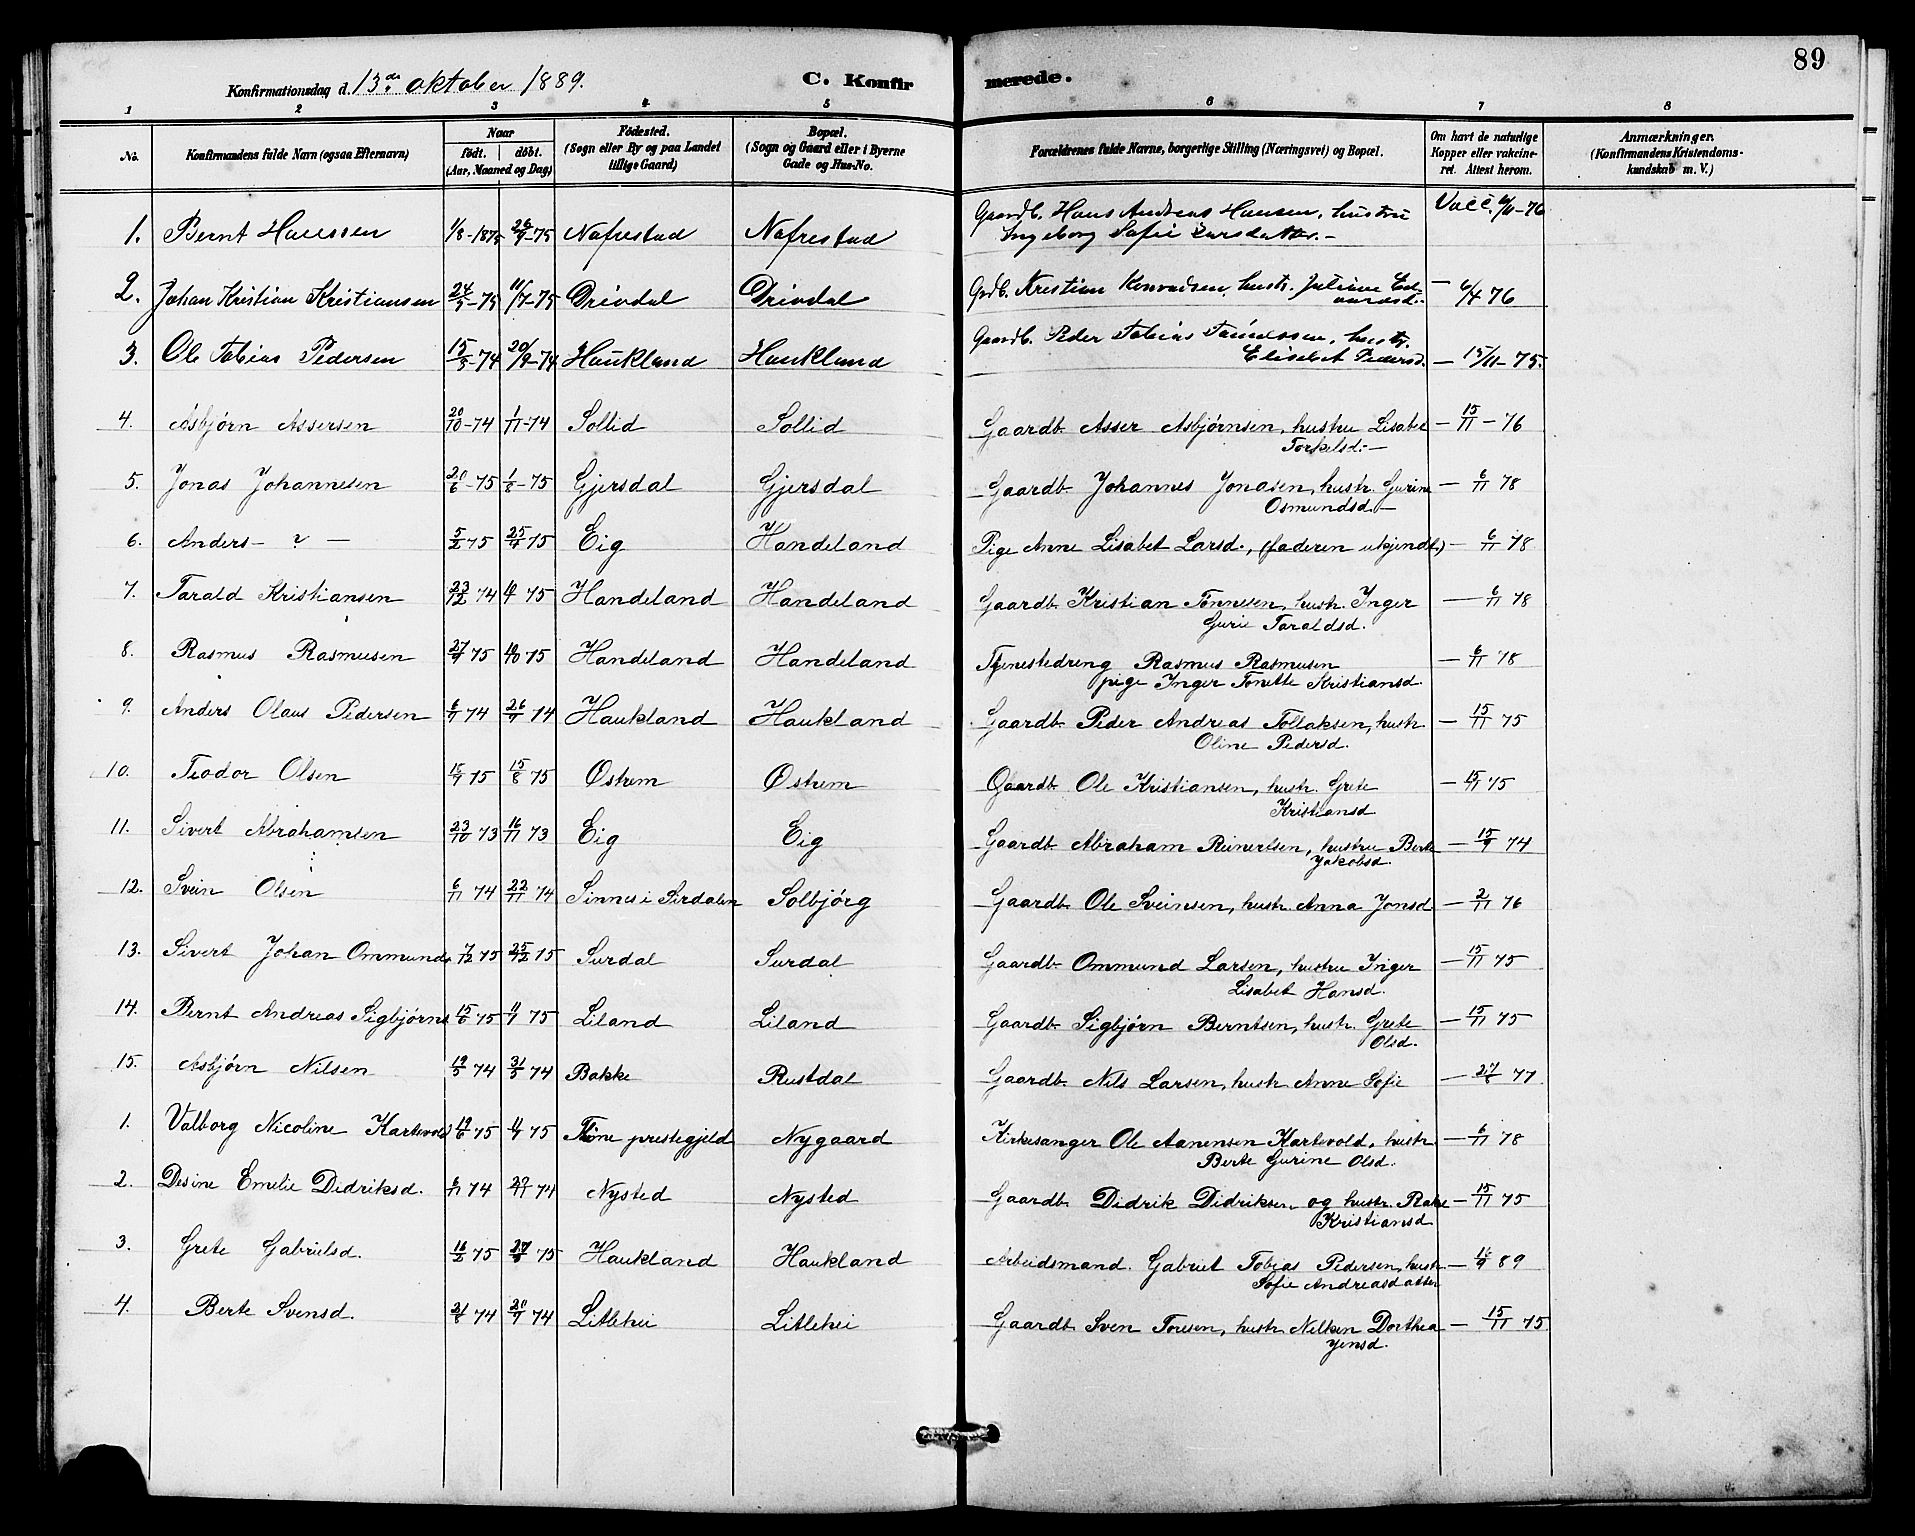 89
Konfirmationsdag d. 13de oktober 1889. C. Konfirmerede.
1 2 3 4 5 6 7 8
No. Konfirmandens fulde Navn (ogsaa Efternavn) Naar født. døbt. (Aar, Maaned og Dag) Fødested. (Sogn eller By og paa Landet tillige Gaard) Bopæl. (Sogn og Gaard eller i Byerne Gade og Hus-No. Forældrenes fulde Navne, borgerlige Stilling (Næringsvei) og Bopæl. Om havt de naturlige Kopper eller vakcineret. Attest herom. Anmærkninger. (Konfirmandens Kristendomskundskab m. V.)
1. Bernt Hanssen 1/8-1875 26/9-75 Nafrestad Nafrestad Gaardb. Hans Andreas Hansen, hustru Vacc. 6/11-76
Ingeborg Sofie Larsdatter.-
2. Johan Kristian Kristiansen 24/5-75 11/7-75 Drivdal Drivdal Grdb. Kristian Konradsen, hustr. Juline — 6/4 76
3. Ole Tobias Pedersen 15/8-74 20/9-74 Haukland Haukland Gaardb. Peder Tobias Tønnessen, hustr.
Elisabet Pedersd. — 15/11-75.
4. Asbjørn Assersen 20/10-74 1/11-74 Sollid Sollid Gaardb. Asser Asbjørnsen, hustru Lisabet — 15/11-76
Torkelsd.-
5. Jonas Johannesen 20/6-75 1/8-75 Gjersdal Gjersdal Gaardb. Johannes Jonasen, hustr. Gurine — 6/11 78
Osmundsd.-
6. Anders - ? - 5/2 75 25/4 75 Eig Handeland Pige Anne Lisabet Larsd., (faderen ukjendt.) — 6/11 78
7. Tarald Kristiansen 23/12 74 75 Handeland Handeland Gaardb. Kristian Tønnesen, hustr. Inger — 6/11 78
Gurie Taraldsd.
8. Rasmus Rasmusen 27/9 75 10/10 75 Handeland Handeland Tjenestedreng Rasmus Rasmusen — 6/11 78
pige Inger Tonette Kristiansd.
9. Anders Olaus Pedersen 6/7 74 26/7 74 Haukland Haukland Gaardb. Peder Andreas Tollaksen, hustr. — 15/11 75
Oline Pedersd.
10. Teodor Olsen 15/7 75 15/8 75 Østrem Østrem Gaardb. Ole Kristiansen, hustr. Grete — 15/11 75
Kristiansd
11. Sivert Abrahamsen 23/10 73 16/11 73 Eig Eig Gaardb. Abraham Reinertsen, hustru Berte — 15/9 74
Jakobsd.
12. Svein Olsen 6/11 74 22/11 74 Sinnes i Sirdalen Solbjørg Gaardb. Ole Sveinsen, hustr. Anna Jonsd. — 2/11 76
13. Sivert Johan Ommunds. 7/12 75 25/12 75 Surdal Surdal Gaardb. Ommund Larsen, hustru Inger — 15/11 75
Lisabet Hansd.
14. Bernt Andreas Sigbjørns. 15/6 75 11/7 75 Liland Liland Gaardb. Sigbjørn Berntsen, hustr. Grete — 15/11 75
Olsd.
15. Asbjørn Nilsen 19/5 74 31/5 74 Bakke Rustdal Gaardb. Nils Larsen, hustr. Anne Sofie — 27/8 77
1. Valborg Nicoline Kartevold 19/6 75 11/7 75 prestegjeld Nygaard Kirkesanger Ole Aanensen Kartevold, hustr. — 6/11 78
Berte Gurine Olsd.
2. Desine Emelie Didriksd. 6/11 74 29/11 74 Nysted Nysted Gaardb. Didrik Didriksen og hustr. Rakel — 15/11 75
Kristiansd
3. Grete Gabrielsd. 16/2 75 75 Haukland Haukland Arbeidsmand. Gabriel Tobias Pedersen, hustr. — 89
Sofie Andreasdatter
4. Berte Svensd. 21/8 74 20/9 74 Litlehei Litlehei Gaardb. Sven Toresen, hustr. Nilken Dorthea — 15/11 75.
Jensd.